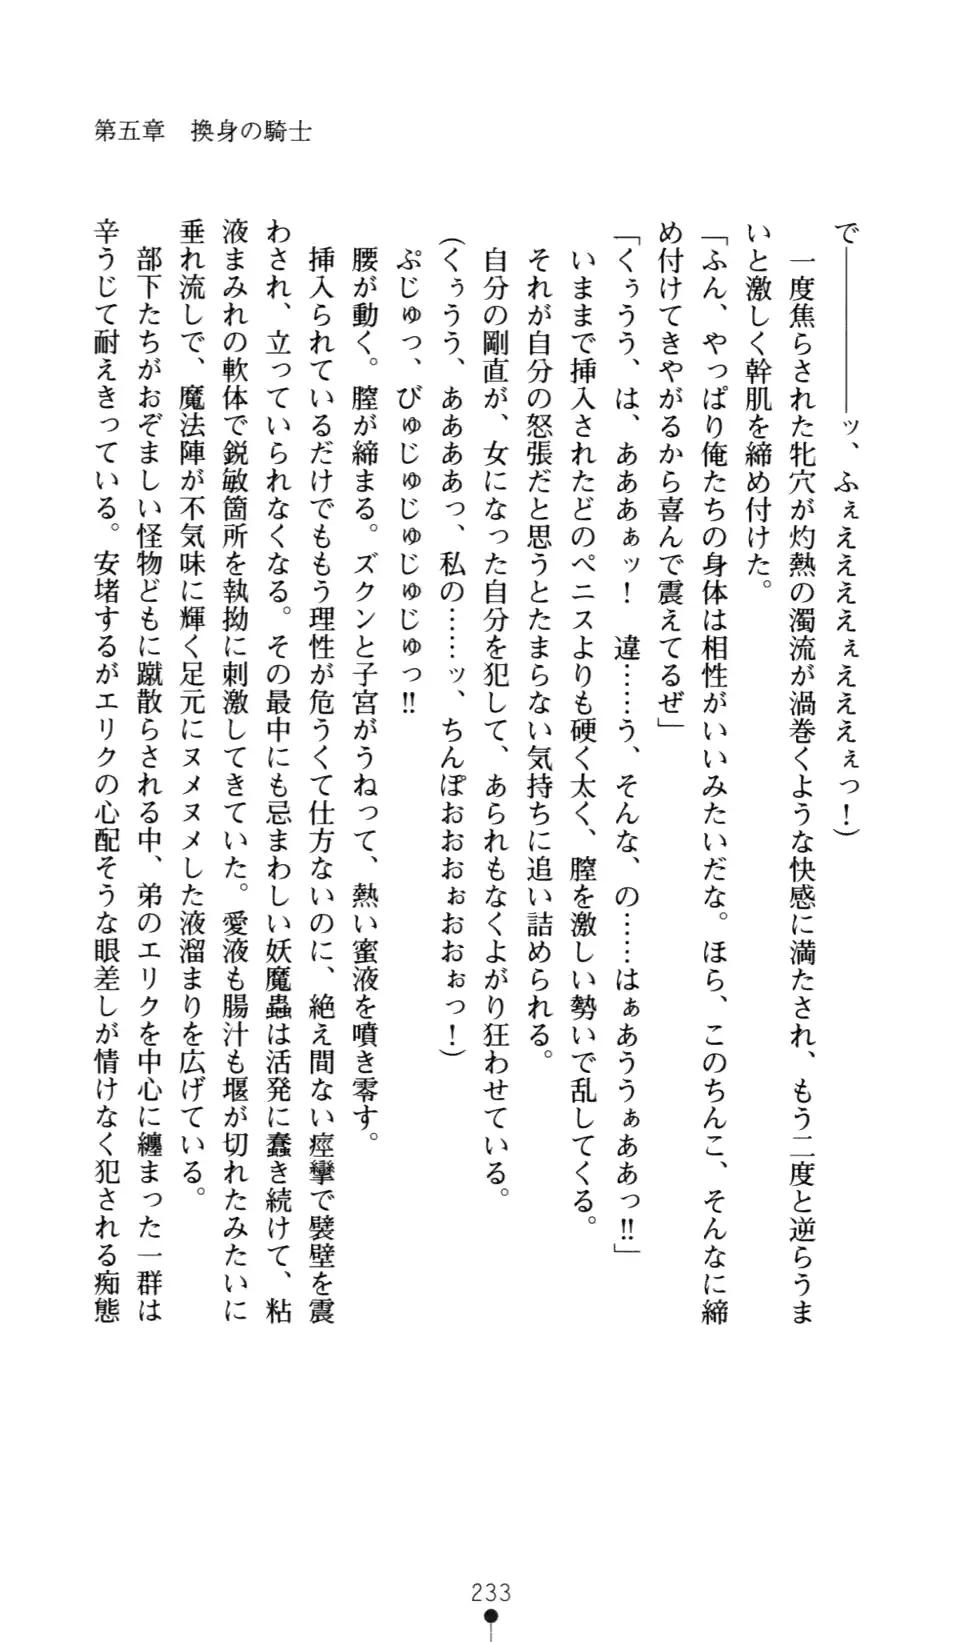 第五章　換身の騎士
で――――――ッ、ふぇええええぇえええぇっ！）
　一度焦らされた牝穴が灼熱の濁流が渦巻くような快感に満たされ、もう二度と逆らうま
いと激しく幹肌を締め付けた。
「ふん、やっぱり俺たちの身体は相性がいいみたいだな。ほら、このちんこ、そんなに締
め付けてきやがるから喜んで震えてるぜ」
「くぅうう、は、あああぁッ！　違……う、そんな、の……はぁあううぁああっ!!」
　いままで挿入されたどのペニスよりも硬く太く、膣を激しい勢いで乱してくる。
　それが自分の怒張だと思うとたまらない気持ちに追い詰められる。
　自分の剛直が、女になった自分を犯して、あられもなくよがり狂わせている。
（くぅうう、ああああっ、私の……ッ、ちんぽおおおぉおおおぉっ！）
　ぷじゅっ、びゅじゅじゅじゅっ!!
　腰が動く。膣が締まる。ズクンと子宮がうねって、熱い蜜液を噴き零す。
　挿入られているだけでももう理性が危うくて仕方ないのに、絶え間ない痙攣で襞壁を震
わされ、立っていられなくなる。その最中にも忌まわしい妖魔蟲は活発に蠢き続けて、粘
液まみれの軟体で鋭敏箇所を執拗に刺激してきていた。愛液も腸汁も堰が切れたみたいに
垂れ流しで、魔法陣が不気味に輝く足元にヌメヌメした液溜まりを広げている。
　部下たちがおぞましい怪物どもに蹴散らされる中、弟のエリクを中心に纏まった一群は
辛うじて耐えきっている。安堵するがエリクの心配そうな眼差しが情けなく犯される痴態
233